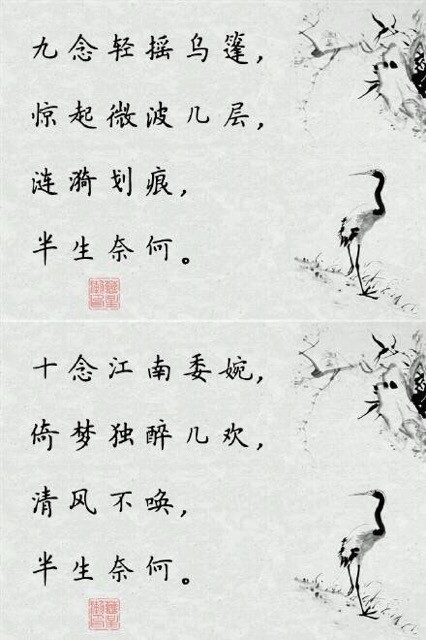 九念轻摇乌篷，
惊起微波几层，
涟漪划痕，
半生奈何。
十念江南委婉，
倚梦独醉几欢，
清风不唤，
半生奈何。